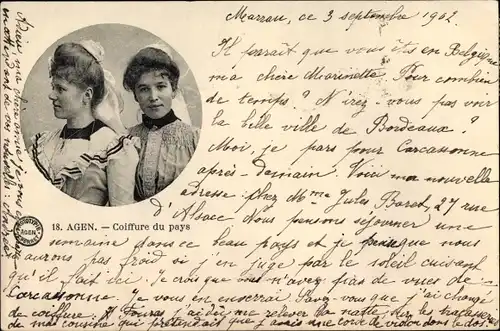 Marzan, ce 3 septembre 1902
Il paraît que vous êts en Belgique
ma chère Marinette. Pour combien
de temps? N'irez-vous pas voir
la belle ville de Bordeaux?
Moi, je pars pour Carcassonne
après-demain. Voici ma nouvelle
adresse: chez Mme Jules Baret, 27 rue
d'Alsace. Nous pensons séjourner une
semaine dans ce beau pays et je pense que nous
aurons pas froid si j'en juge par le soleil cuisant
qu'il fait ici. Je crois que vous n'avez pas de vues de
Carcassonne. Je vous en enverrai. Savez-vous que j'ai changé
de coiffure. A Fouras j'ai dû me relever la natte sur les
de ma cousine qui prétendait que j'avais une corde
18. AGEN. — Coiffure du pays
AGEN